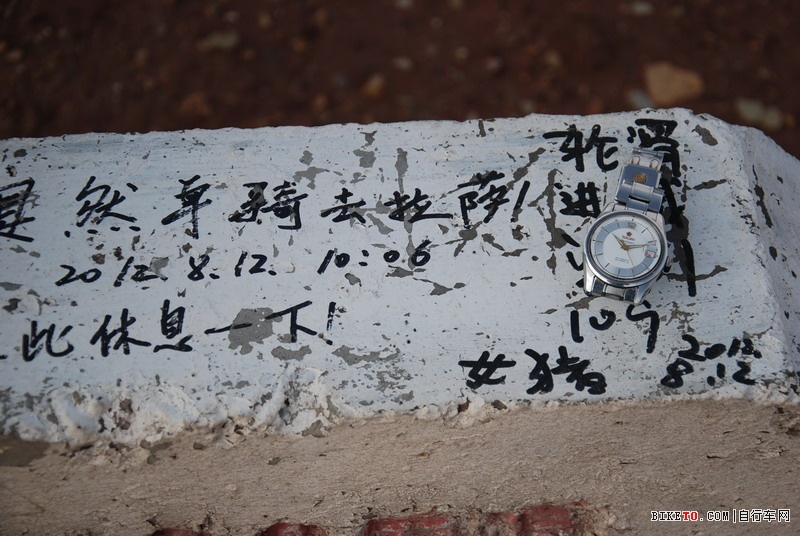 然单骑去拉萨!
2012.8.12. 10:06
此休息一下!
轮渭
进
109
女猪
2012.
8.12
BIKETO.COM|自行车网